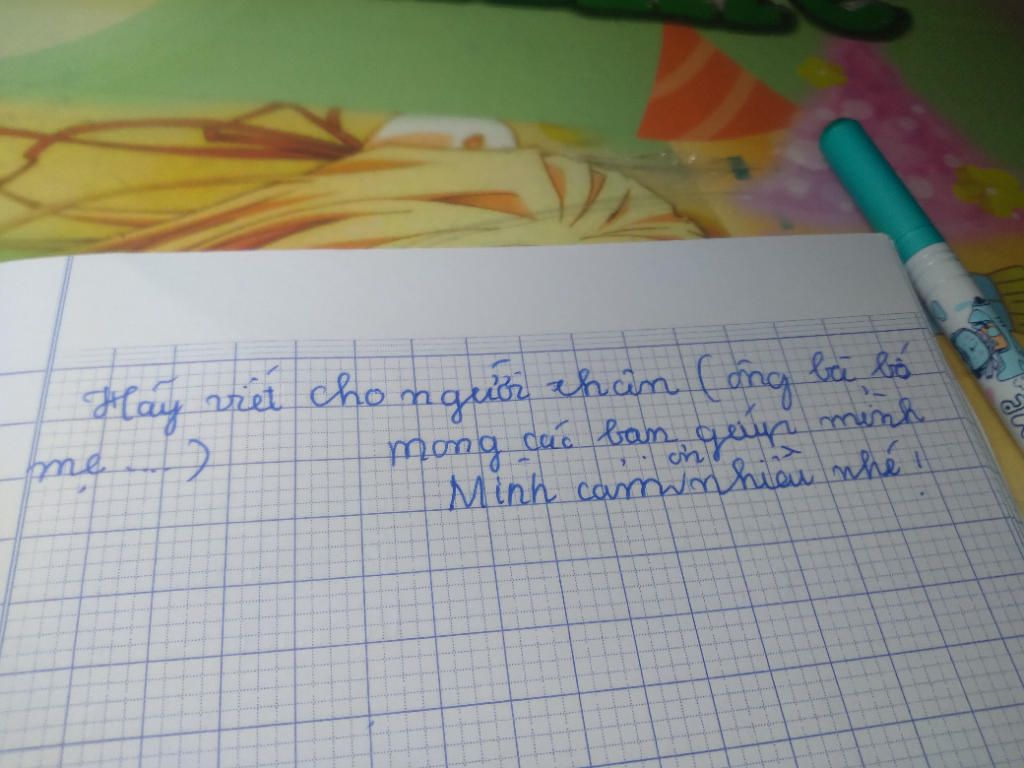 Hãy viết cho người thân (ông bà, bố
mẹ....) mong các bạn giúp mình
Mình cảm ơn nhiều nhé!